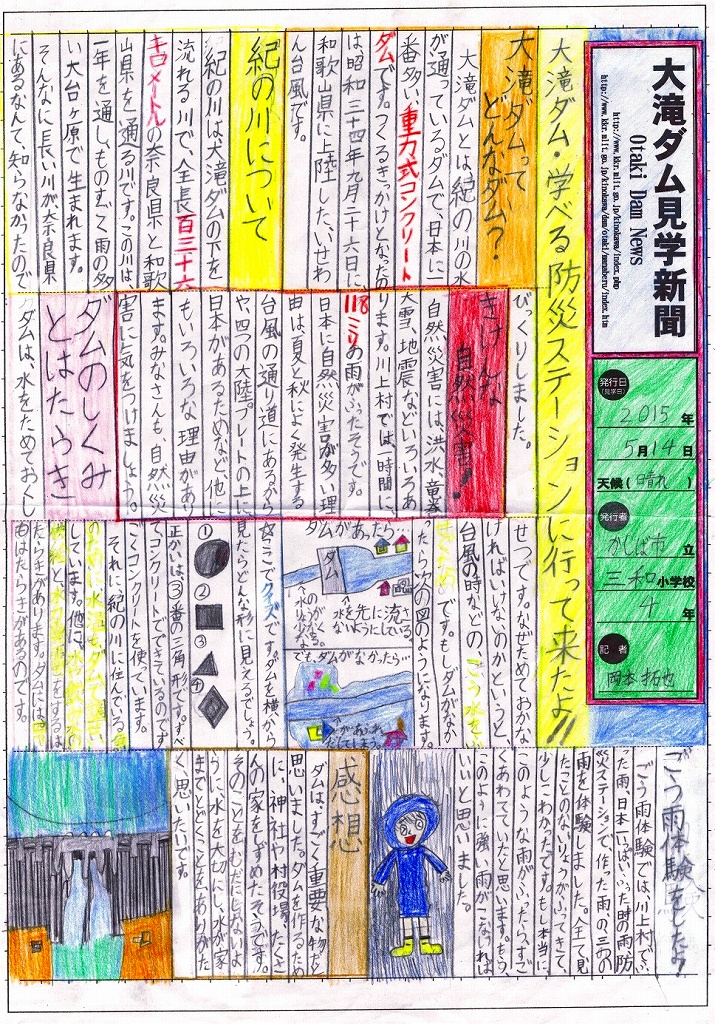 大滝ダム見学新聞
Otaki Dam News
http://www.kkr.mlit.go.jp/kinokawa/index.php
http://www.kkr.mlit.go.jp/kinokawa/dam/otaki/manaberu/index.htm
発行日
(見学日)
2015年
5月14日
天候(晴れ)
発行者
かしば市立
三和小学校
4年
記者
岡本拓也
大滝ダム・学べる防災ステーションに行って来たよ!!
大滝ダムって
どんなダム?
大滝ダムとは、紀の川の水
が通っているダムで、日本に一
番多い、重力式コンクリート
ダムです。つくるきっかけとなったの
は、昭和三十四年九月二十六日に
和歌山県に上陸した、いせわ
ん台風です。
紀の川について
紀の川は大滝ダムの下を
流れる川で、全長百三十六
キロメートルの奈良県と和歌
山県を通る川です。この川は、
一年を通し、ものすごく雨の多
い大台ヶ原で生まれます。
そんなに長い川が、奈良県
にあるなんて、知らなかったので
びっくりしました。
きけんな
自然災害!
自然災害には、洪水、竜巻、
大雪、地震などいろいろあ
ります。川上村では、一時間に、
118ミリの雨がふったそうです。
日本に自然災害が多い理
由は、夏と秋によく発生する
台風の通り道にあるから
や、四つの大陸プレートの上に
日本があるためなど、他に
もいろいろな理由があり
ます。みなさんも、自然災
害に気をつけましょう。
ダムのしくみ
とはたらき
ダムは、水をためておくし
せつです。なぜためておかな
ければいけないのかというと、
台風の時などの、こう水をふ
せぐためです。もしダムがなか
ったら次の図のようになります。
ダムがあったら…
ダム
水を先に流さ
ないようにしている
でも、ダムがなかったら…
ここでクイズです。ダムを横から
見たらどんな形に見えるでしょう。
①
②
③
④
正かいは、③番の三角形です。すべ
てコンクリートでできているのです
ごくコンクリートを使っています。
それに紀の川に住んでいる
たらきがあります。ダムには、
もはたらきがあるのです。
ごう雨体験をしたよ!
ごう雨体験では、川上村でふ
った雨、日本一いっぱいふった時の雨、防
災ステーションで、作った雨の、三つの
雨を体験しました。今まで見
たことのないりょうがふってきて
少しこわかったです。もし本当に
このような雨がふったらすご
くあわてていたと思います。もう
このように強い雨がこなければ
いいと思いました。
感想
ダムは、すごく重要な物だと
思いました。ダムを作るため
に、神社や村役場、たくさ
んの家をしずめたそうです。
そのことをむだにしないよ
うに、水を大切にし、水が家
までとどくことをありがた
く思いたいです。